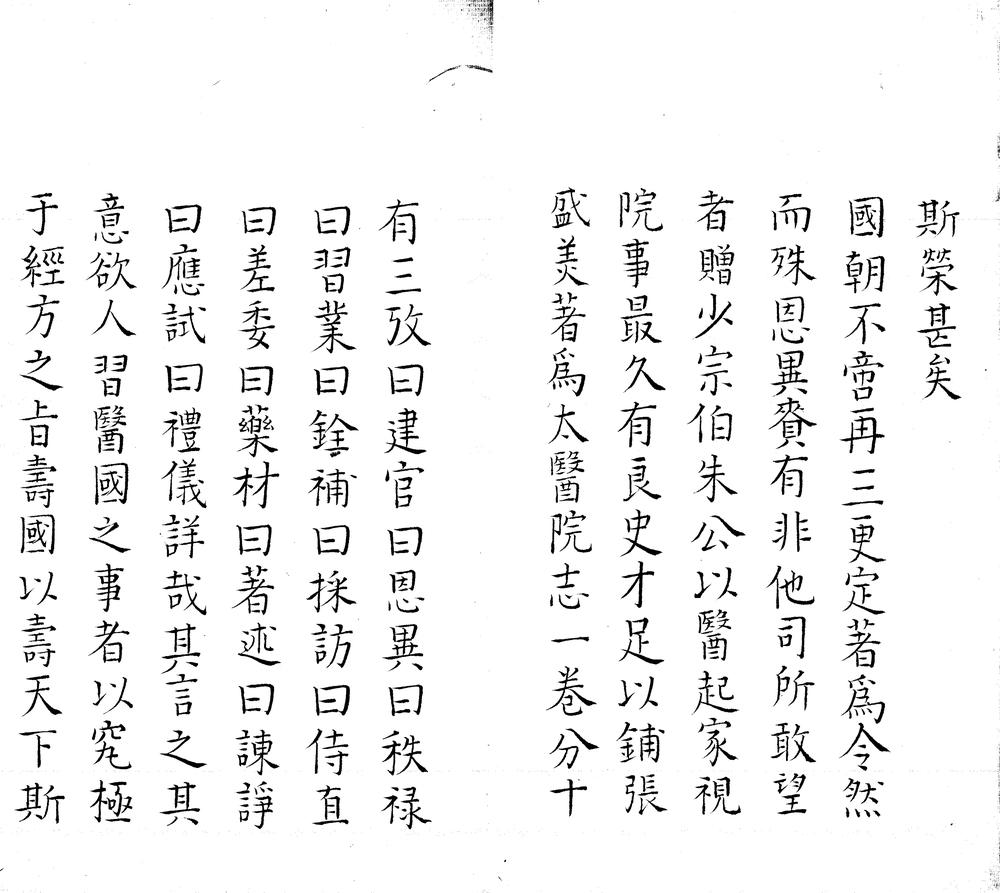 斯榮甚矣
國朝不啻再三更定著爲令然
而殊恩異賚有非他司所敢望
者贈少宗伯朱公以醫起家視
院事最久有良史才足以鋪張
盛羙著爲太醫院志一卷分十
有三攷曰建官曰恩異曰秩禄
曰習業曰銓補曰採訪曰侍直
曰差委曰藥材曰著述曰諫諍
曰應試曰禮儀詳哉其言之其
意欲人習醫國之事者以究極
于經方之旨壽國以壽天下斯